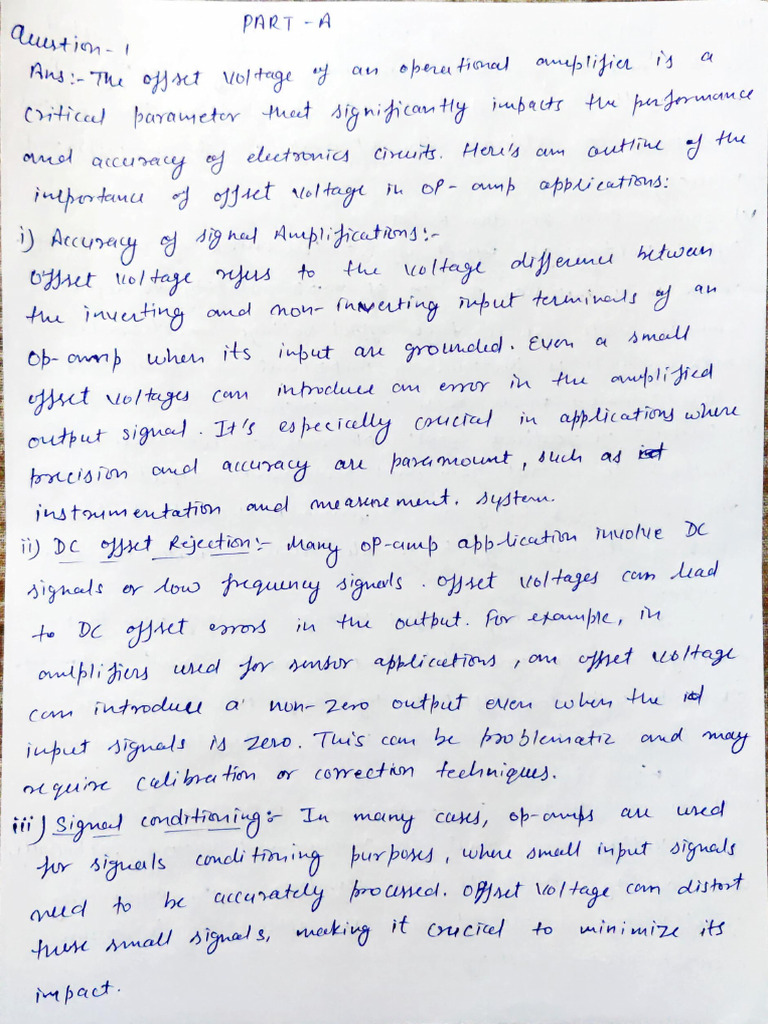 PART - A
Question - 1
Ans:- The offset voltage of an operational amplifier is a
critical parameter that significantly impacts the performance
and accuracy of electronics circuits. Here's an outline of the
importance of offset voltage in OP-amp applications:
i) Accuracy of signal Amplifications:-
Offset voltage refers to the voltage difference between
the inverting and non-inverting input terminals of an
op-amp when its input are grounded. Even a small
offset voltages can introduce an error in the amplified
output signal. It's especially crucial in applications where
precision and accuracy are paramount, such as
instrumentation and measurement. system.
ii) DC offset Rejection:- Many op-amp application involve DC
signals or low frequency signals. Offset voltages can lead
to DC offset errors in the output. For example, in
amplifiers used for sensor applications, an offset voltage
can introduce a non-zero output even when the
input signals is zero. This can be problematic and may
require calibration or correction techniques.
iii) Signal conditioning:- In many cases, op-amps are used
for signals conditioning purposes, where small input signals
need to be accurately processed. Offset voltage can distort
these small signals, making it crucial to minimize its
impact.